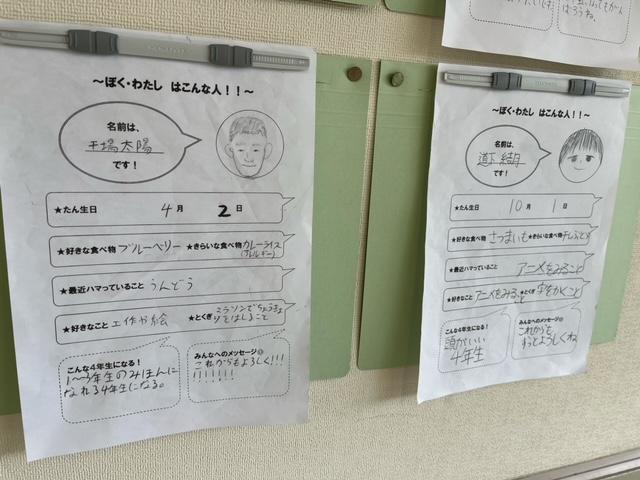 ～ぼく・わたし はこんな人！！～
名前は、
干場 太陽
です！
★たん生日 4月 2日
★好きな食べ物 ブルーベリー ★きらいな食べ物 カレーライス
(アレルギー)
★最近ハマっていること うんどう
★好きなこと 工作や絵 ★とくぎ
こんな4年生になる！
1〜3年生のみほんに
なれる4年生になる。
みんなへのメッセージ☺
これからもよろしく!!!
!!!!!!!
～ぼく・わたし はこんな人！！～
名前は、
道下 結月
です！
★たん生日 10月 1日
★好きな食べ物 さつまいも ★きらいな食べ物
★最近ハマっていること アニメをみること
★好きなこと アニメをみる ★とくぎ 字をかくこと
こんな4年生になる！
頭がいい
4年生
みんなへのメッセージ☺
これからも
もっとよろしくね